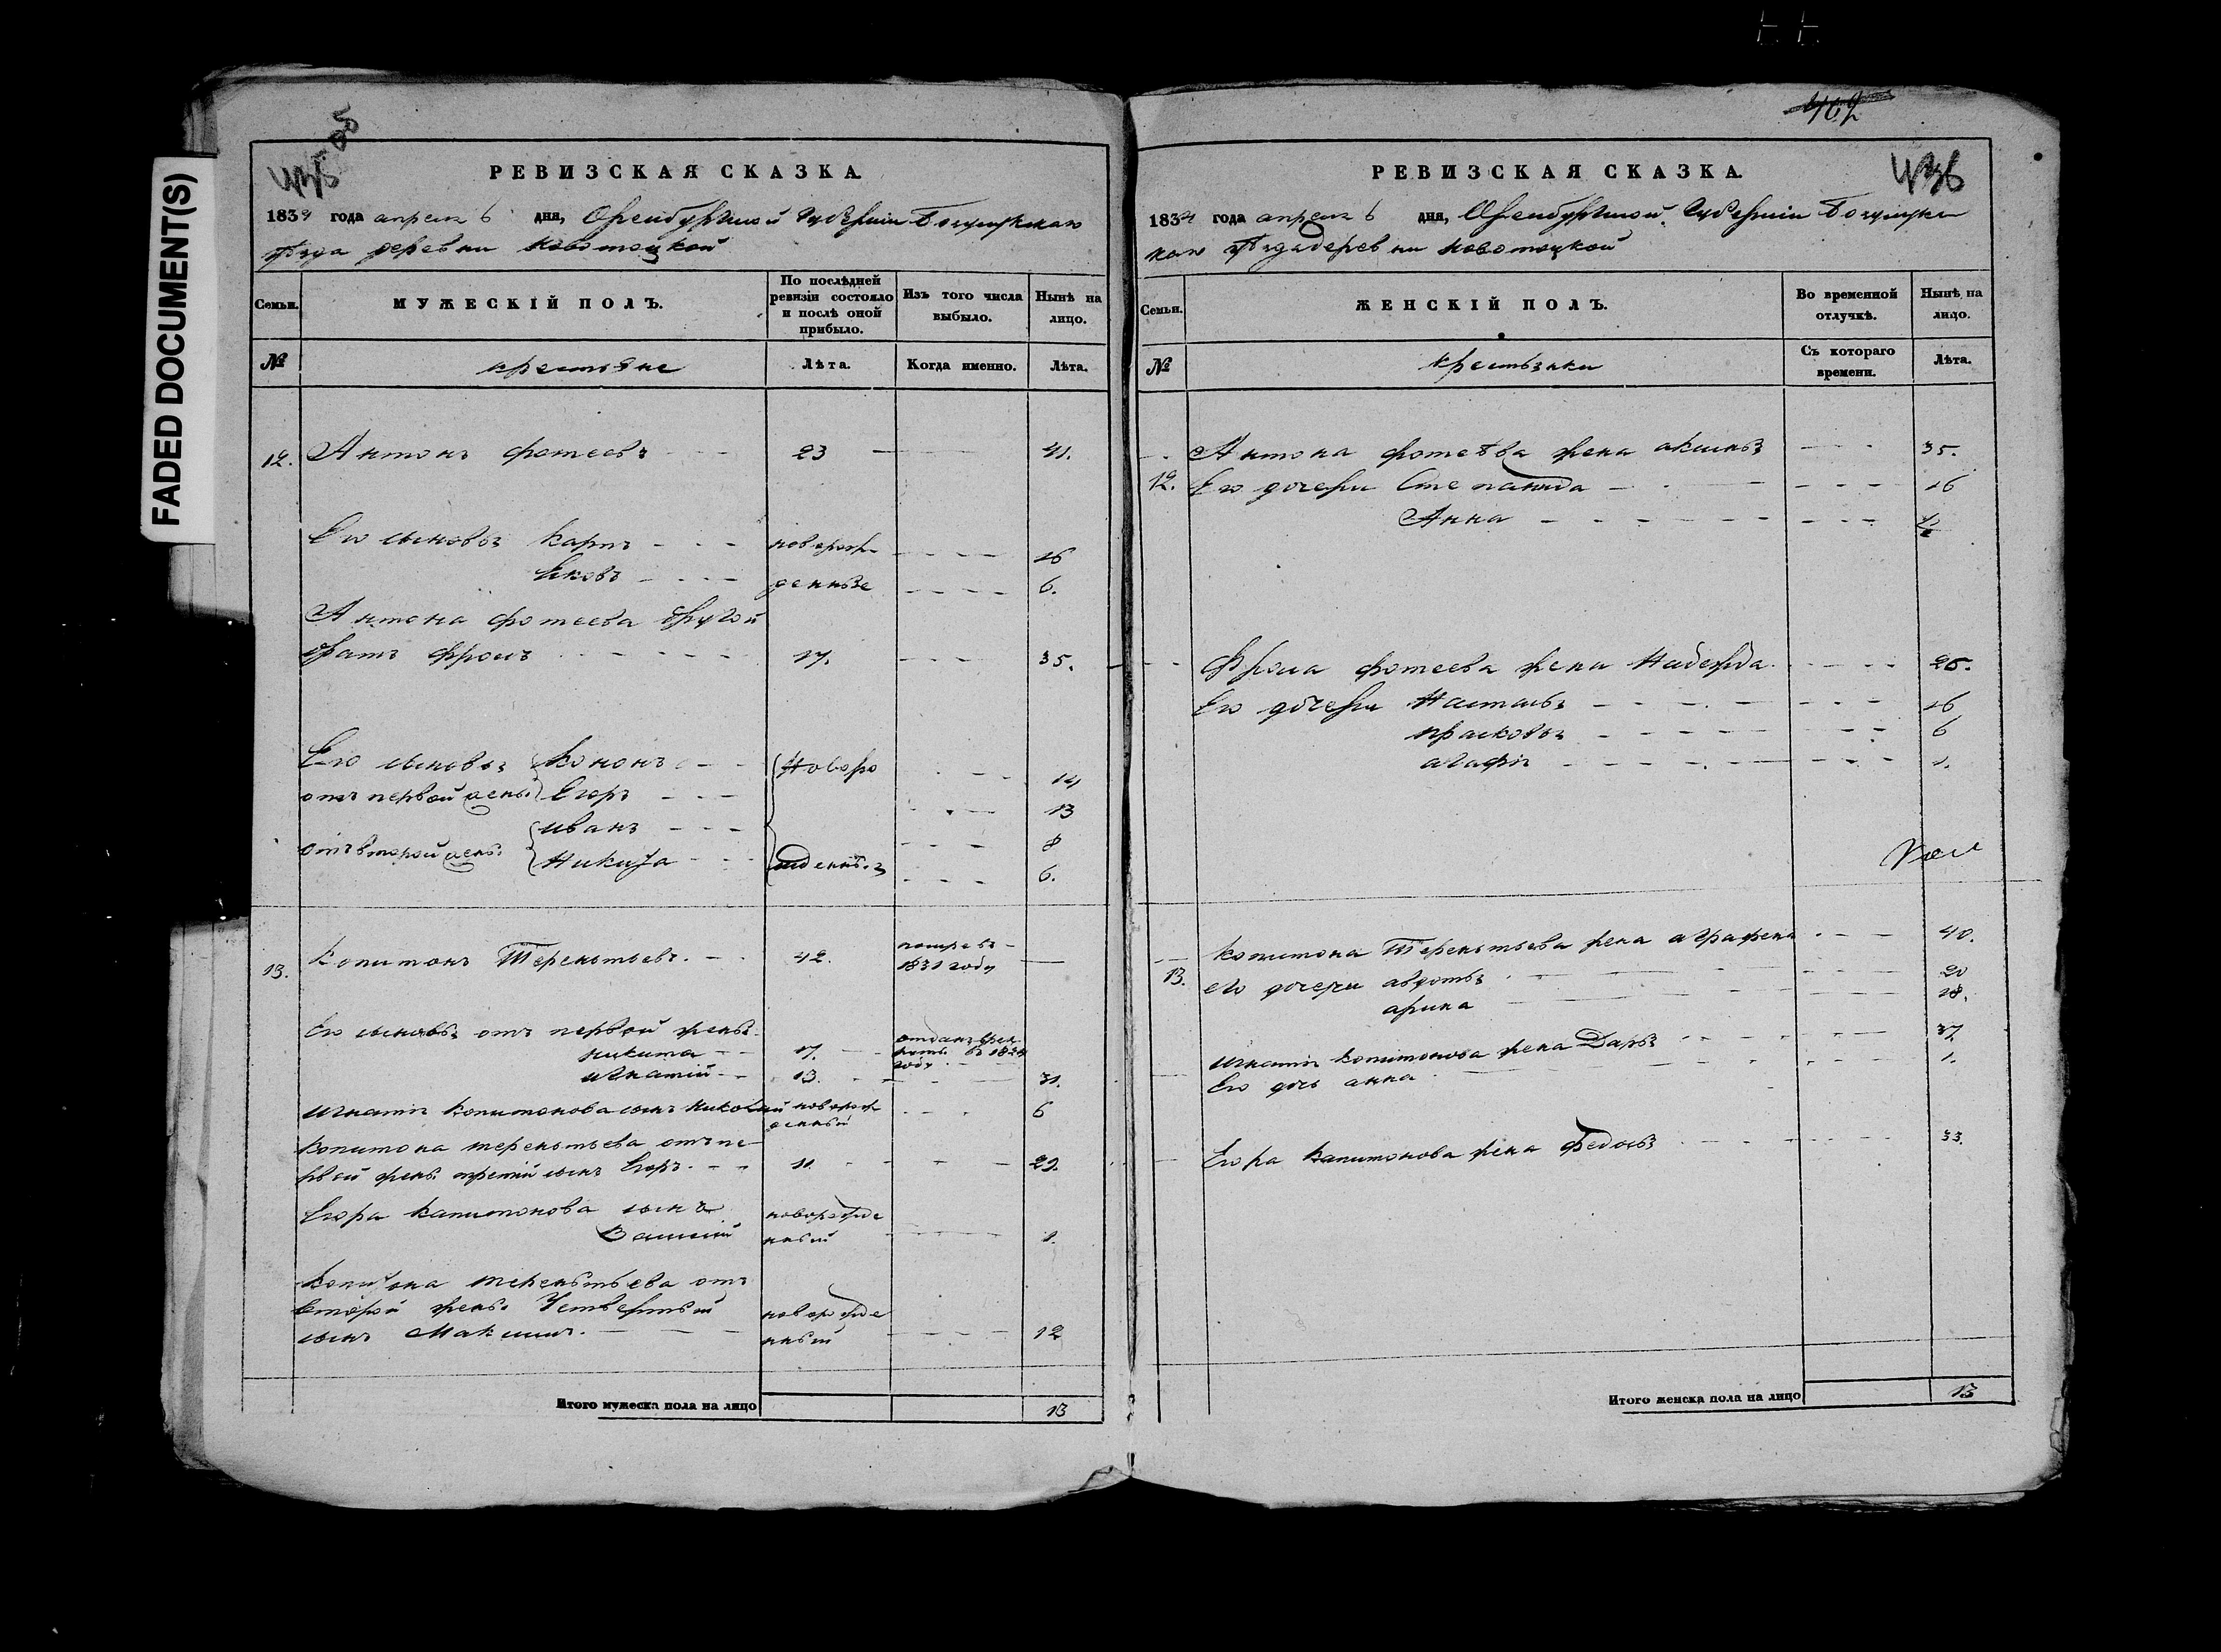 FADED DOCUMENT(S)
435 об
РЕВИЗСКАЯ СКАЗКА.
1834 года апреля 6 дня, Оренбургской Губернiи Бузулукскаго
уѣзда деревни Новотоцкой
Семьи.
МУЖЕСКІЙ ПОЛЪ.
По послѣдней ревизіи состояло и послѣ оной прибыло.
Изъ того числа выбыло.
Нынѣ на лицо.
№
крестьяне
Лѣта.
Когда именно.
Лѣта.
12. Антонъ фотеевъ 23 41.
Его сыновья карпъ новорож- 16
Яковъ денные 6.
Антона фотеева другой
братъ фролъ 17. 35.
Его сыновья Кононъ Новоро 14
отъ первой жены Егоръ 13
иванъ 8
отъ второй жены Никита жденныя 6.
13. Копитонъ Терентьевъ. 42. померъ въ
1831 году
Его сыновья отъ первой жены
никита 17. отданъ врек
руты въ 1824
году
игнатий 13. 31.
игнатія копитонова сынъ николай новорож 6
денный
копитона терентьева отъ пе-
рвой жены третій сынъ Егоръ. 11. 29.
Егора капитонова сынъ новорожде
Василий нный 1.
Копитона терентьева отъ
второй жены Четвертый новорожде
сынъ Максимъ. нный 12
Итого мужеска пола на лицо 13
469
436
РЕВИЗСКАЯ СКАЗКА.
1834 года апреля 6 дня, Оренбургской Губернiи Бузулукс
каго уѣзда деревни новотоцкой
Семьи.
ЖЕНСКІЙ ПОЛЪ.
Во временной отлучкѣ.
Нынѣ на лицо.
№
крестьянки
Съ котораго времени.
Лѣта.
Антона фотеѣва жена аксинья 35.
12. Его дочери Степанида 16
Анна 1/2
Фрола фотеева жена Надежда 25.
Его дочери Настасья 16
прасковья 6
агафія 1.
копитона Терентьева жена аграфена 40.
13. его дочери авдотья 20
арина 18.
игнатія копитонова жена Дарья 37
Его дочь анна 1.
Егора капитонова жена Федосья 33.
Итого женска пола на лицо 13